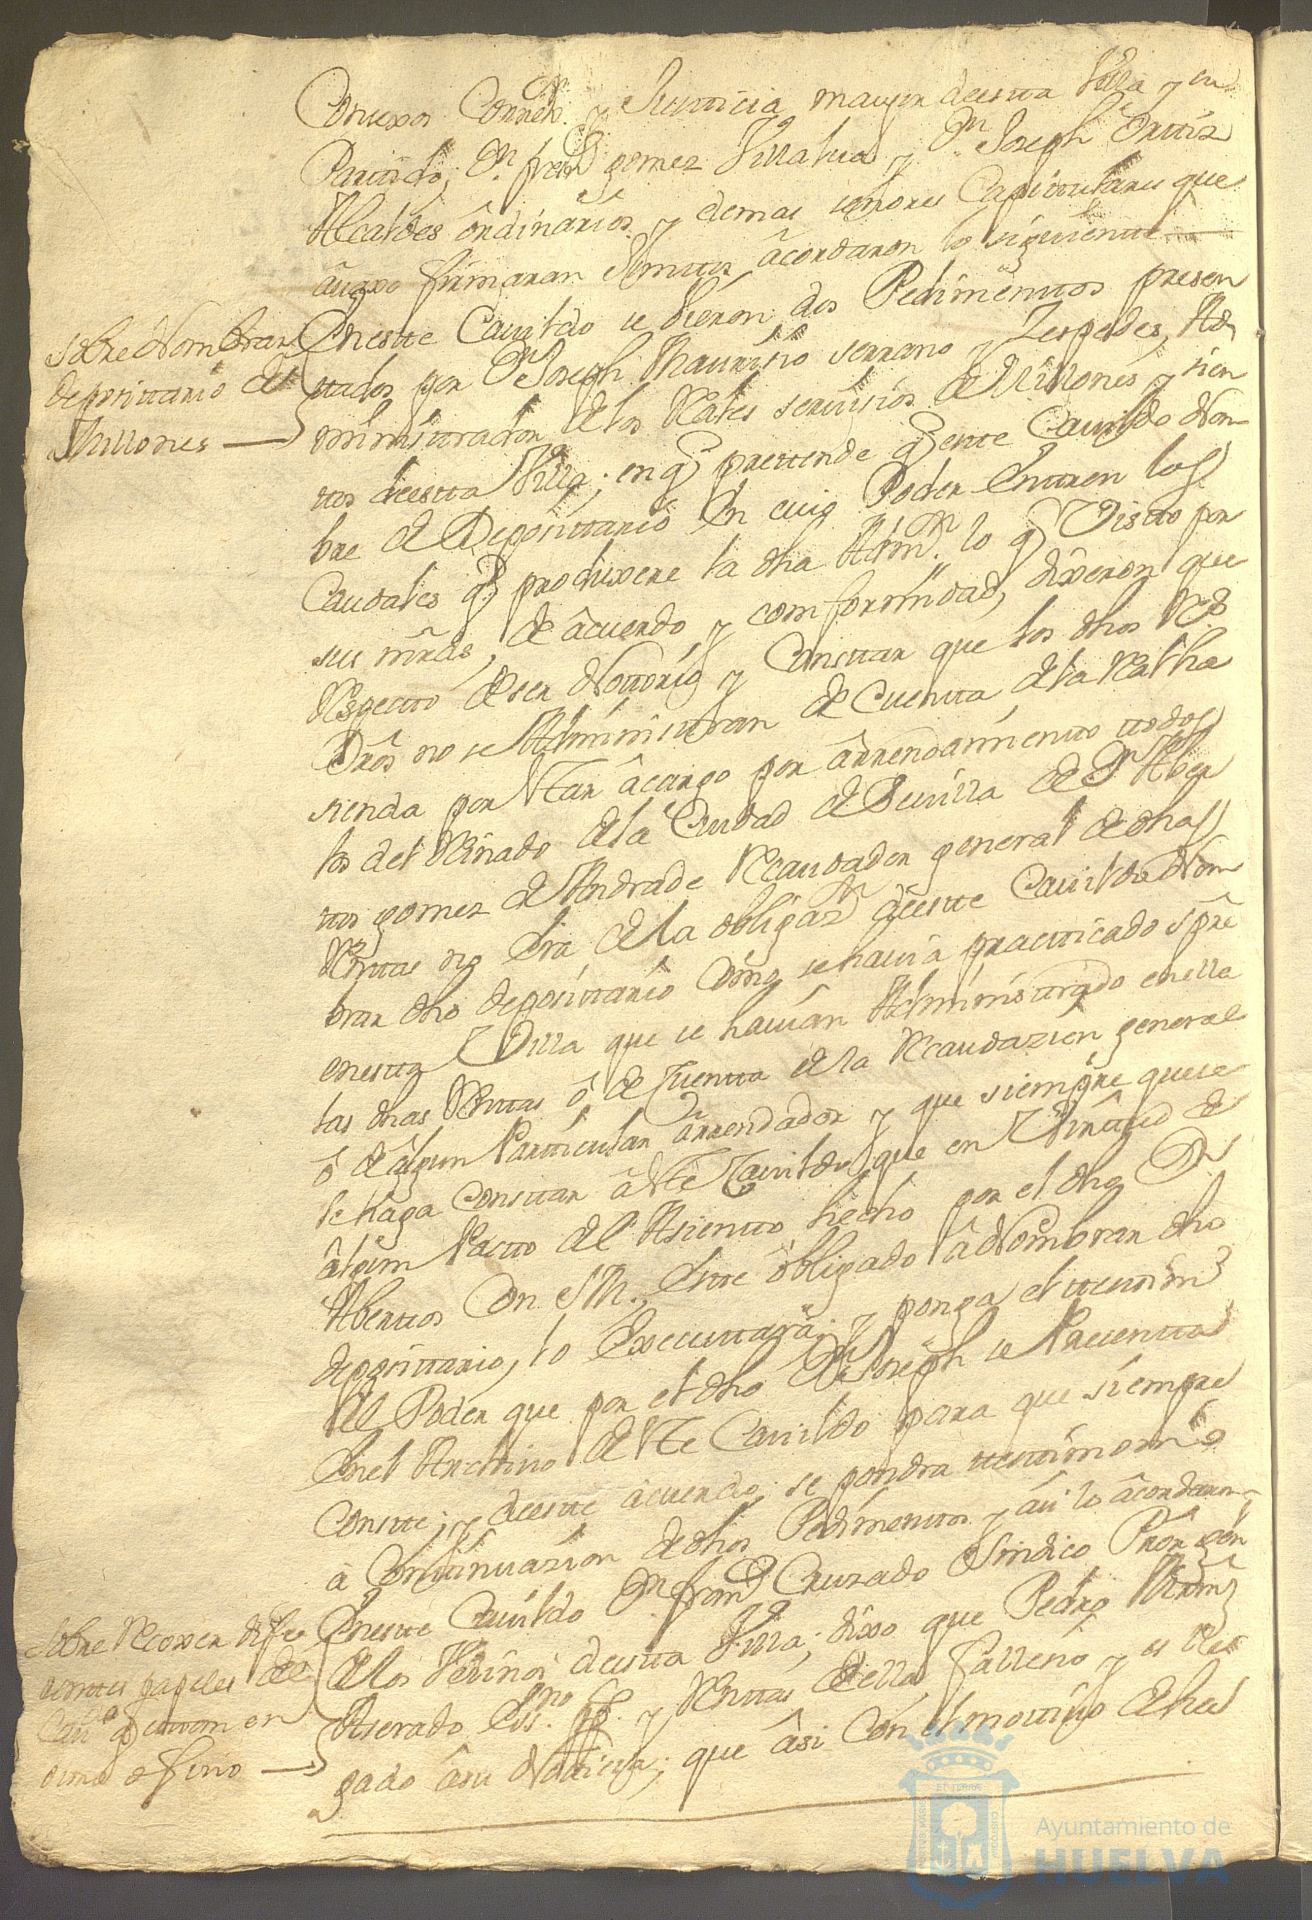 Conexos Correxr. y Justicia mayor deesta Villa y su
Partido; Dn. franco gomez Villalua y Dn. Joseph Ortiz
Alcaldes ôrdinarios y demas señores Capitulares que
âuajo firmaran Juntos âcordaron lo siguiente
sobre Nombrar
depositario de
Millones
Enesste Cauildo se bieron dos Pedimentos presen
tados por Dn. Joseph Mauricio serrano y Zespedes, Ad
ministrador de los Reales seruisios de Millones y sien
tos deesta Villa; en q pretende q este Cauildo Nom
bre Depositario En cuio Poder Entren los
Caudales q produxere la dha Admn. lo q Visto por
sus mrds, de âcuerdo y comformidad, dixeron que
Respecto de ser Nottorio y Constar que los dhos Rs
Dros no se Administran de Cuenta de la Ral ha
sienda por estar âcargo por ârrendamiento todos
los del Reinado de la Ciudad de Seuilla de Dn Alber
tos gomez de Andrade Recaudador general de dhas
Rentas no Era de la obligazn deeste Cauildo Nom
brar dho depositario Como se hauia practicado spre
enesta Villa que se hauian Administrado en ella
las dhas Rentas ô de Cuenta de la Recaudazion general
ô de âlgun Particular ârrendador y que siempre que se
le haga Constar â este Cauildo que en Virtud de
âlgun Pacto del Asiento hecho por el dho Dn
Albertos Con S M., Este obligado â Nombrar dho
depositario, lo Executtarâ y ponga el testimo
del Poder que por el dho Dn Joseph se Presenta
En el Archiuo de este Cauildo para que siempre
Conste; y deeste âcuerdo se pondra testimonio
a Continuazion de dhos Pedimentos y âsi lo âcordaron
sobre Recoxer dife
rentes papeles del
Cauo. q estan en
oficio
Enesste Cauildo Dn franco Cruzado Sindico Pror Gen
de los Vesinos deesta Villa; dixo que Pedro
Aserado Ess.no pp. y Rentas della, fallesio y es lle
gado âsu Noticia; que âsi Con el motiuo de ha
Ayuntamiento de
HUELVA